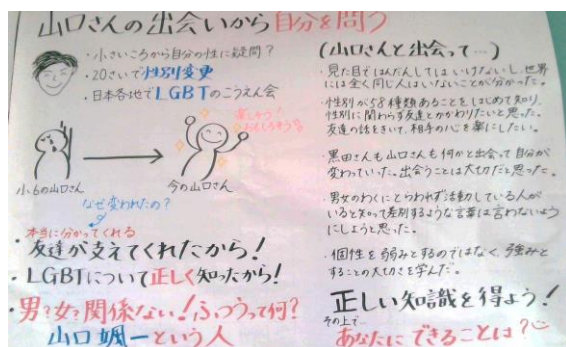 山口さんの出会いから自分を問う
・小さいころから自分の性に疑問?
・20さいで性別変更
・日本各地でLGBTのこうえん会
楽しそう!
おもしろそう!
小6の山口さん
今の山口さん
なぜ変われたの?
本当に分かってくれる
・友達が支えてくれたから!
・LGBTについて正しく知ったから!
・男?女?関係ない!ふつうって何?
山口颯一という人
(山口さんと出会って…)
・見た目ではんだんしてはいけないし、世界
には全く同じ人はいないことが分かった。
・性別が58種類あることをはじめて知り、
性別に関わらず友達とかかわりたいと思った。
友達の話をきいて、相手の心を楽にしたい。
・黒田さんも山口さんも何かと出会って自分が
変わっていった。出会うことは大切だと思った。
・男女のわくにとらわれず活動している人が
いると知って差別するような言葉は言わないよう
にしようと思った。
・個性を弱みとするのではなく、強みと
することの大切さを学んだ。
正しい知識を得よう!
その上で…
あなたにできることは?